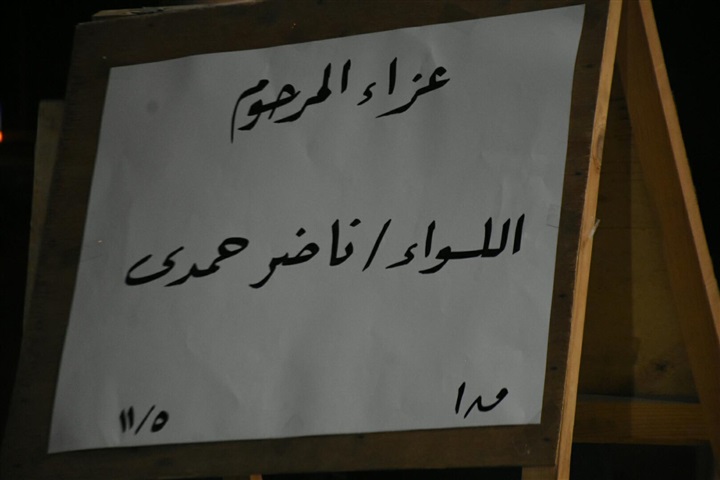 عزاء المرحوم
اللواء / ناضر حمدى
١١/٥